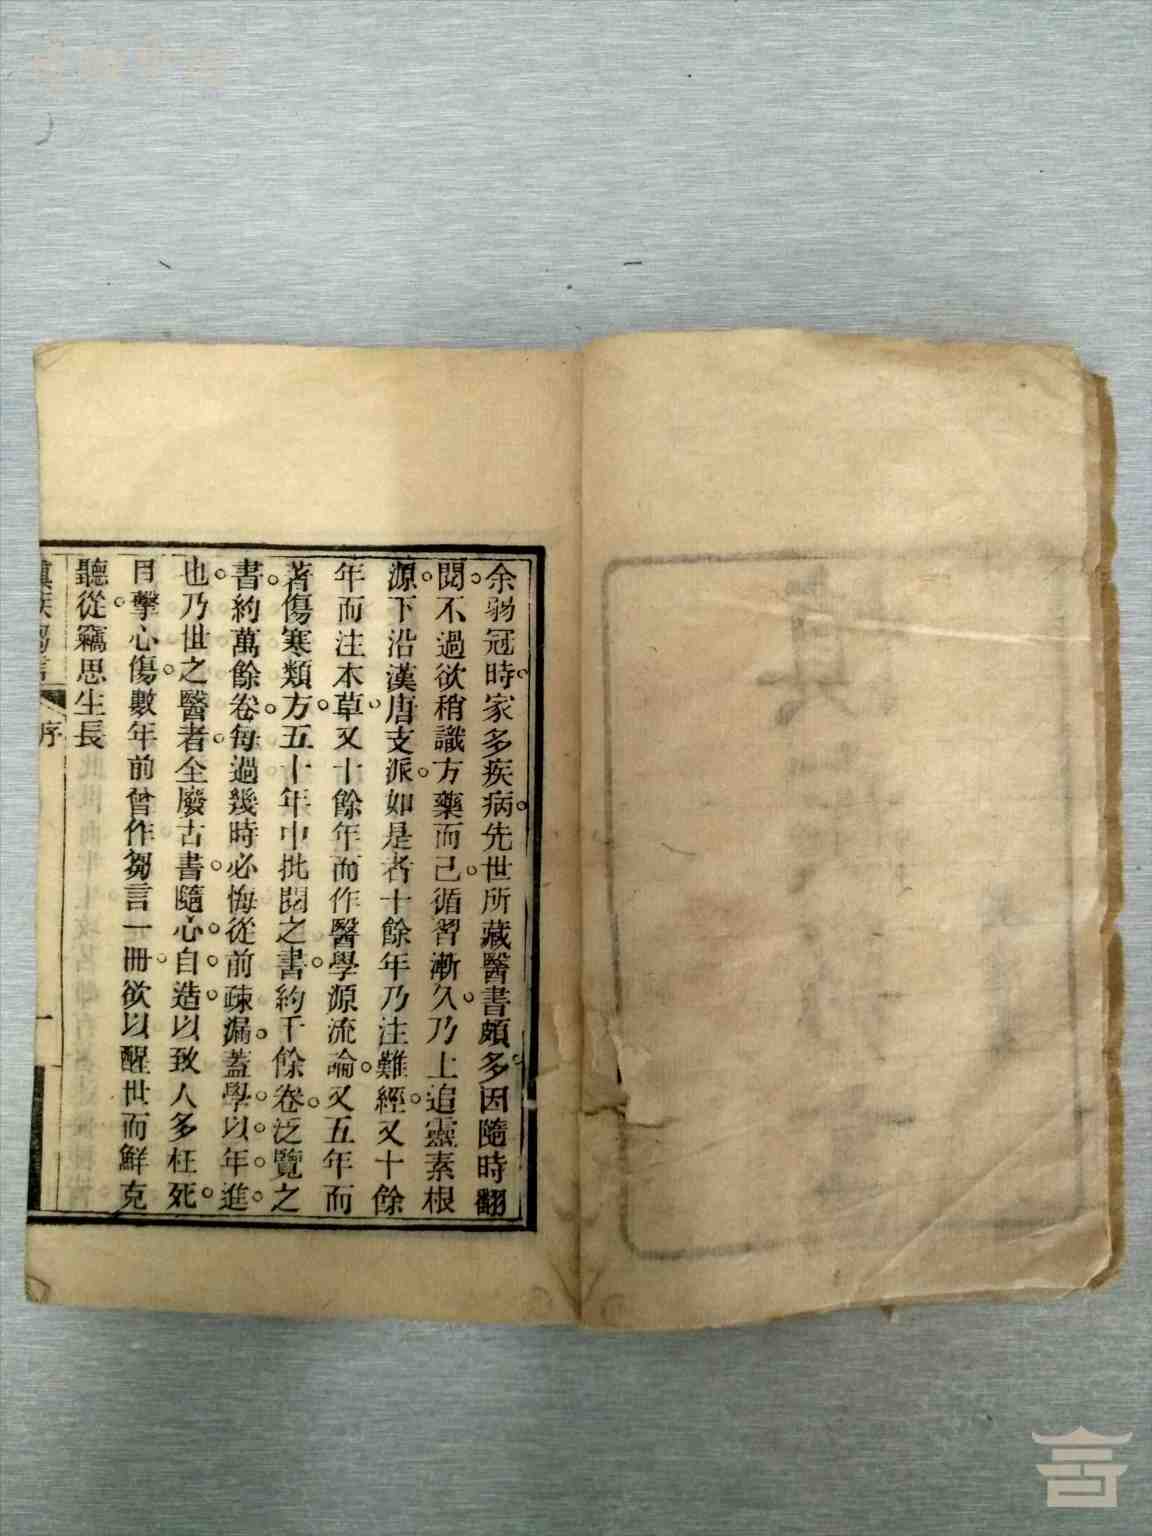 余弱冠時家多疾病先世所藏醫書頗多因隨時翻
閱不過欲稍識方藥而已循習漸久乃上追靈素根
源下沿漢唐支派如是者十餘年乃注難經又十餘
年而注本草又十餘年而作醫學源流論又五年而
著傷寒類方五十年中批閱之書約千餘卷泛覽之
書約萬餘卷每過幾時必悔從前疎漏蓋學以年進
也乃世之醫者全廢古書隨心自造以致人多枉死
目擊心傷數年前曾作芻言一冊欲以醒世而鮮克
聽從竊思生長
慎疾芻言 序 一